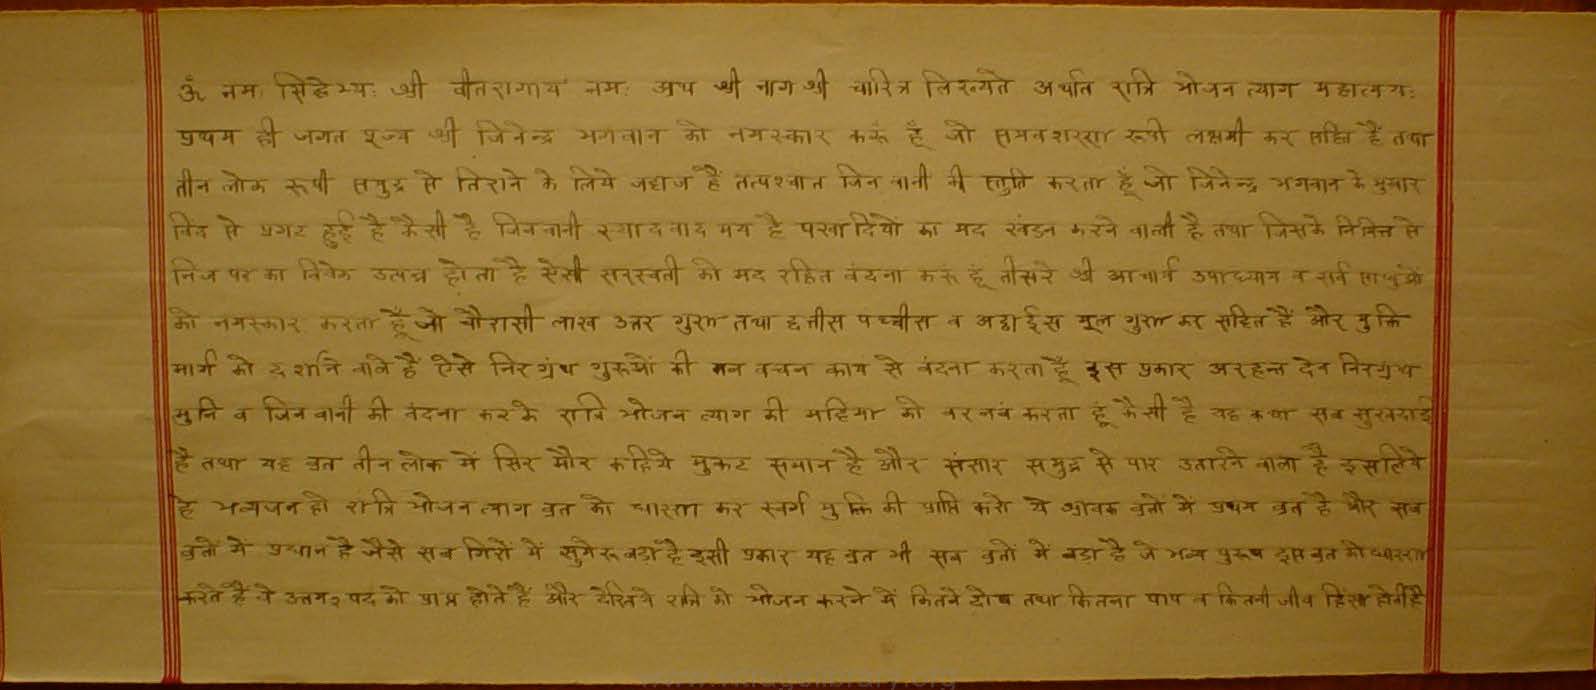 ॐ नमः सिद्धेभ्यः श्री वीतरागाय नमः अथ श्री नाग श्री चारित्र लिख्यते अर्थात रात्रि भोजन त्याग महात्मयः
प्रथम ही जगत पूज्य श्री जिनेन्द्र भगवान को नमस्कार करूं हूँ जो समवशरण रूपी लक्षमी कर सहित हैं तथा
तीन लोक रूपी समुद्र से तिराने के लिये जहाज हैं तत्पश्चात जिन वानी की स्तुति करता हूँ जो जिनेन्द्र भगवान के मुखार
विंद से प्रगट हुई है कैसी है जिनवानी स्यादवाद मय है परवादियों का मद खंडन करने वाली है तथा जिसके निमित्त से
निज पर का विवेक उत्पन्न होता है ऐसी सरस्वती को मद रहित वंदना करूं हूं तीसरे श्री आचार्य उपाध्याय व सर्व साधुओं
को नमस्कार करता हूँ जो चौरासी लाख उत्तर गुण तथा छत्तीस पच्चीस व अट्ठाईस मूल गुण कर सहित हैं और मुक्ति
मार्ग को दर्शाने वाले हैं ऐसे निरग्रंथ गुरूओं की मन वचन काय से वंदना करता हूँ इस प्रकार अरहन्त देव निरग्रंथ
मुनि व जिनवानी की वंदना करके रात्रि भोजन त्याग की महिमा को वरनन करता हूं कैसी है यह कथा सब सुखदाई
है तथा यह व्रत तीन लोक में सिर मौर कहिये मुकट समान है और संसार समुद्र से पार उतारने वाला है इसलिये
हे भव्यजन हो रात्रि भोजन त्याग व्रत को धारण कर स्वर्ग मुक्ति की प्राप्ति करो ये श्रावक व्रतों में प्रथम व्रत है और सब
व्रतों में प्रधान है जैसे सब गिरों में सुमेरू बड़ा है इसी प्रकार यह व्रत भी सब व्रतों में बड़ा है जे भव्य पुरूष इस व्रत को धारण
करते हैं वे उत्तम २ पद को प्राप्त होते हैं और देखिये रात्रि को भोजन करने में कितने दोष तथा कितना पाप व कितनी जीव हिंसा होती है